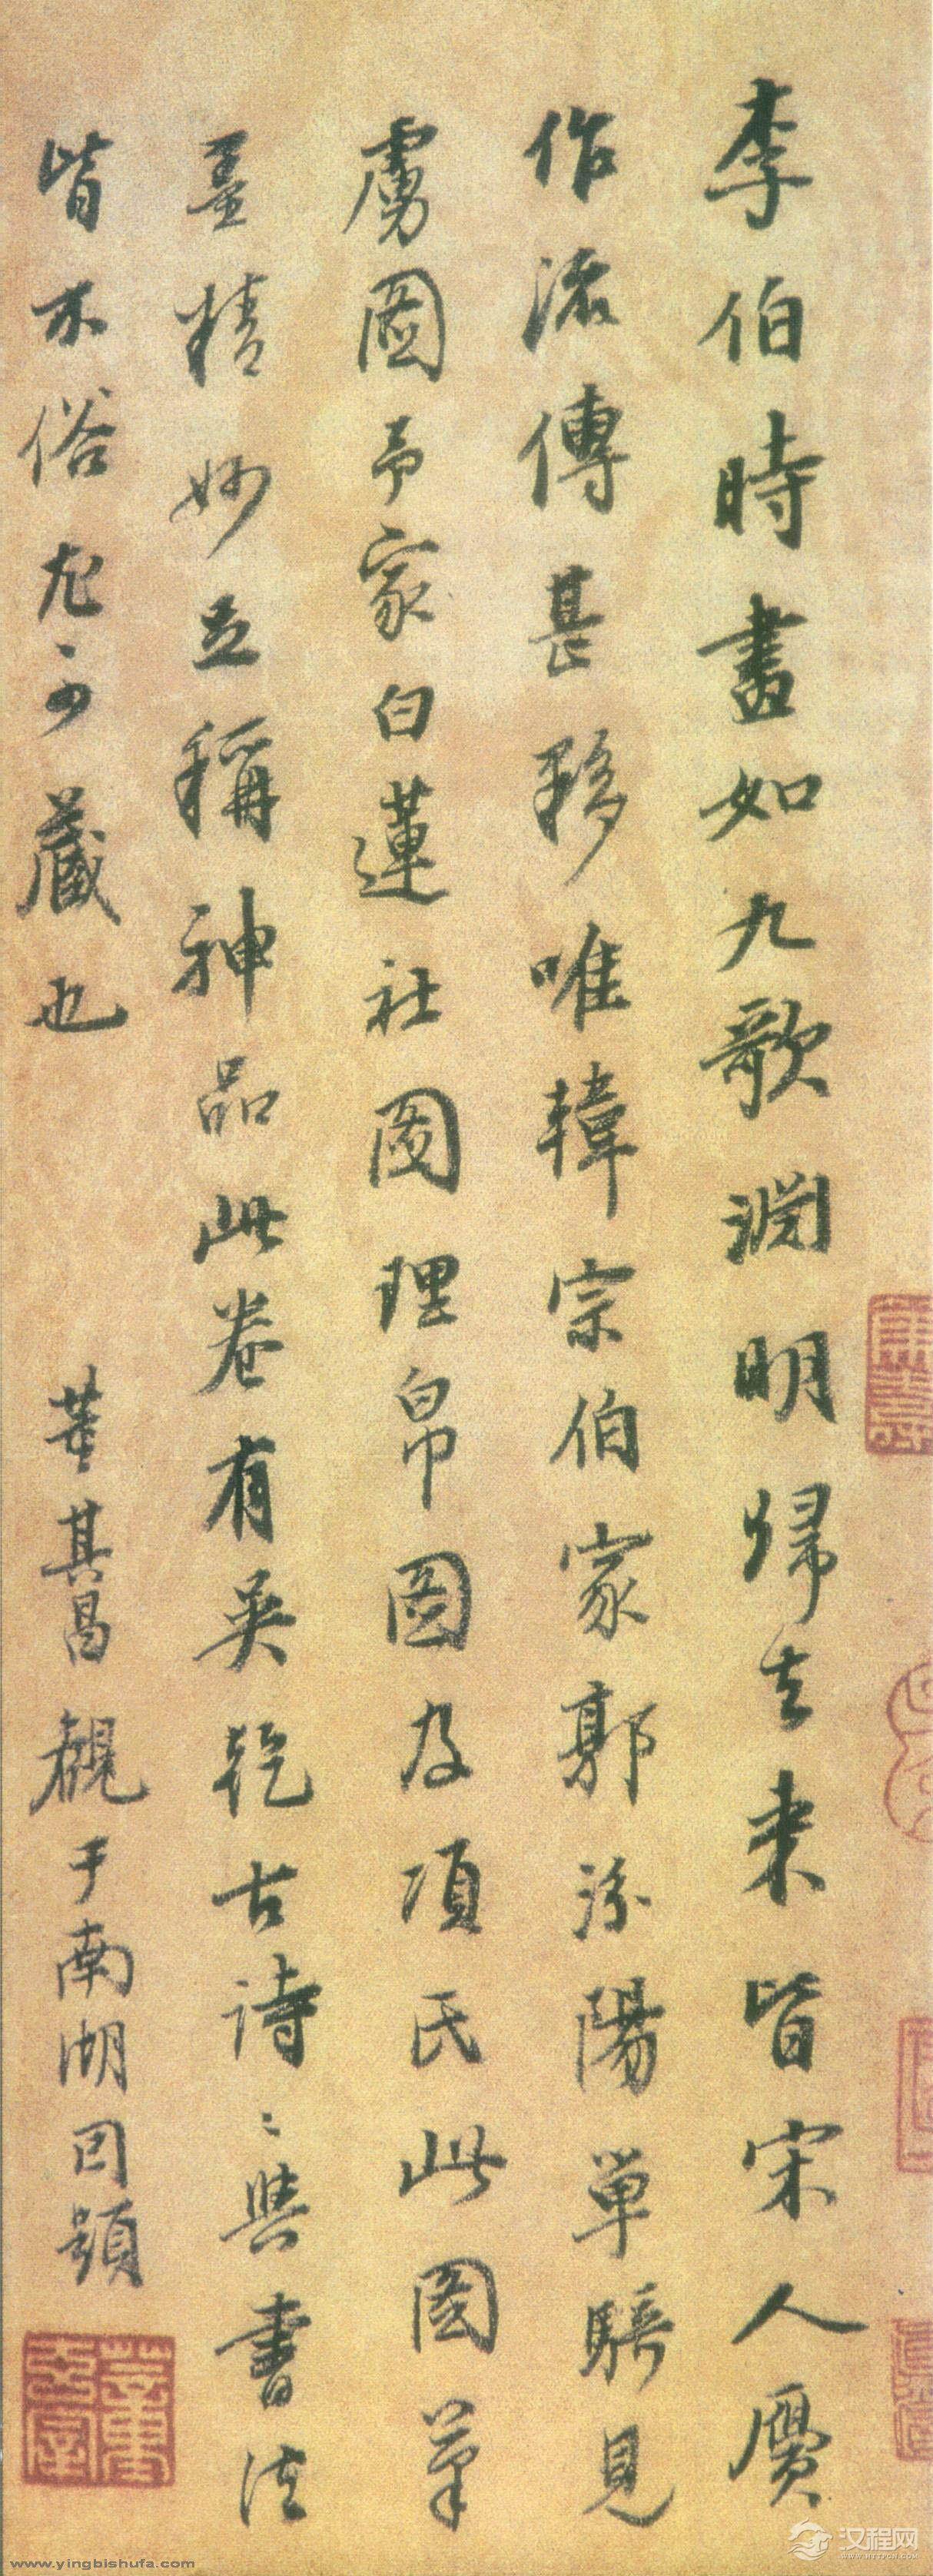 李伯時畫如九歌淵明歸去来皆宋人贗
作流傳甚移唯韓宗伯家郭汾陽單騎見
虜圖予家白蓮社圖理帛圖及項氏此圖筆
墨精妙並稱神品此卷有吳乾古詩〻與書法
皆不俗尤可藏也 董其昌觀于南湖因題
www.yingbishufa.com
汉程网